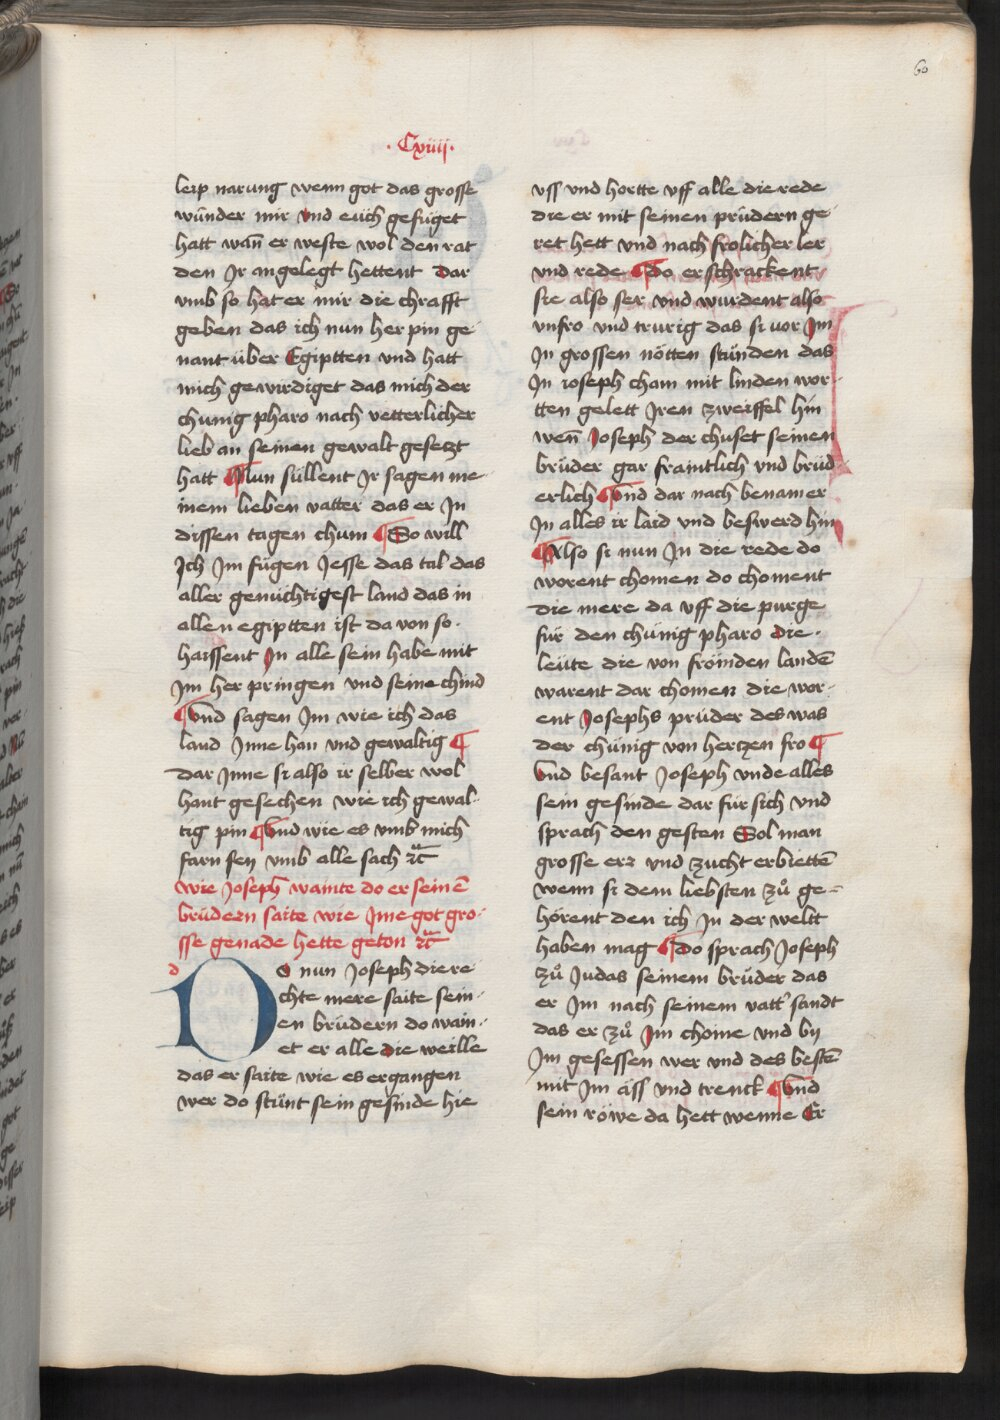 60
· Cxiiij ·
leip narung wenn got das grosse
wunder mir vnd eüch gefüget
hatt wañ er weste wol den rat
den Ir angelegt hettent Dar
vmb so hat er mir die chrafft
geben das ich nun her pin ge
nant über Egiptten vnd hatt
mich gewirdiget das mich der
chunig pharo nach vetterlicher
lieb an seinen gewalt gesetzt
hatt ¶ Nun süllent Ir sagen me
inem lieben vatter das er In
dissen tagen chum ¶ So will
Ich Im fügen Jesse das tal das
aller genüchtigest land das in
allen egiptten ist da von so
haissent In alle sein habe mit
Im her pringen vnd seine chind
¶ vnd sagen Im wie ich das
land Inne han vnd gewaltig ¶
dar Inne si also ir selber wol
hant gesechen wie ich gewal
tig pin ¶ Vnd wie es vmb mich
farn sey vmb alle sach ꝛc̃
wie Joseph wainte do er seinẽ
brüdern saite wie Ime got gro
sse genade hette geton ꝛc̃
d
DO nun Joseph die re
chte mere saite sein
en brüdern do wain
et er alle die weille
das er saite wie es ergangen
wer do stünt sein gesinde hie
vss vnd hortte vff alle die rede
die er mit seinen prüdern ge
ret hett vnd nach frolicher ler
vnd rede ¶ do erschrackent
sie also ser vnd wurdent also
vnfro vnd trurig das si vor Im
In grossen nötten stünden das
In ioseph cham mit linden wor
tten gelett Iren zweiffel hin
wen̄ Joseph der chuset seinen
brüder gar fraintlich vnd brüd
erlich ¶ Vnd dar nach benam er
In alles ir laid vnd beswerd hin
¶ Also si nun In die rede do
worent chomen do choment
die mere da vff die purge
für den chünig pharo die
leüte die von fromden landẽ
warent dar chomen die wor
ent Josephs prüder des was
der chünig von hertzen fro ¶
Vnd besant Joseph vnde alles
sein gesinde dar für sich vnd
sprach den gesten Sol man
grosse erz vnd zucht erbiettẽ
wenn si dem liebsten zů ge=
hörent den ich In der weltt
haben mag ¶ do sprach Joseph
zů Judas seinem brüder das
er Im nach seinem vatt' sandt
das er zů Im chome vnd by
Im gesessen wer vnd des bestẽ
mit Im äss vnd trenck ¶ Vnd
sein röwe da hett wenne Er